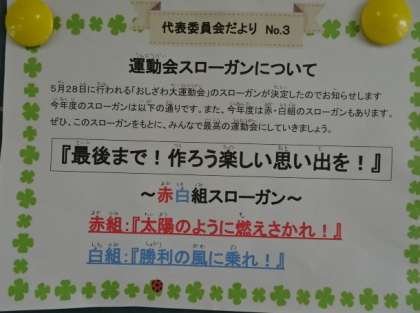 代表委員会だより No.3
運動会スローガンについて
5月28日に行われる「おしざわ大運動会」のスローガンが決定したのでお知らせします
今年度のスローガンは以下の通りです。また、今年度は赤・白組のスローガンもあります。
ぜひ、このスローガンをもとに、みんなで最高の運動会にしていきましょう。
『最後まで！作ろう楽しい思い出を！』
～赤白組スローガン～
赤組:『太陽のように燃えさかれ！』
白組:『勝利の風に乗れ！』